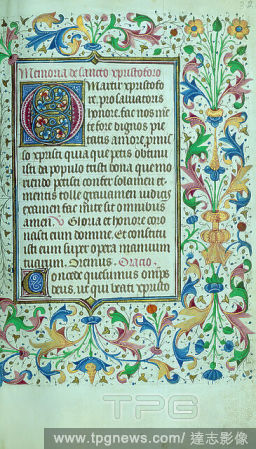 Memoria de sancto xpistoforo
O Martir xpistofo
re. pro saluatoris
honore. fac nos mē
te fore dignos pie
tatis amore. pmis
so xpisti quia que petis obtinu
isti da populo tristi bona que mo
riendo petisti confer solamen et
mentis tolle grauamen iudicis
examen fac mite sit omnibus
amen. V Gloria et honore coro
nasti eum domine. Et constitu
isti eum super opera manuum
tuarum. Oremus. Oratio.
Concede quesumus omps
deus. ut qui beati xpisto
TPG
www.tpgnews.com/達志影像